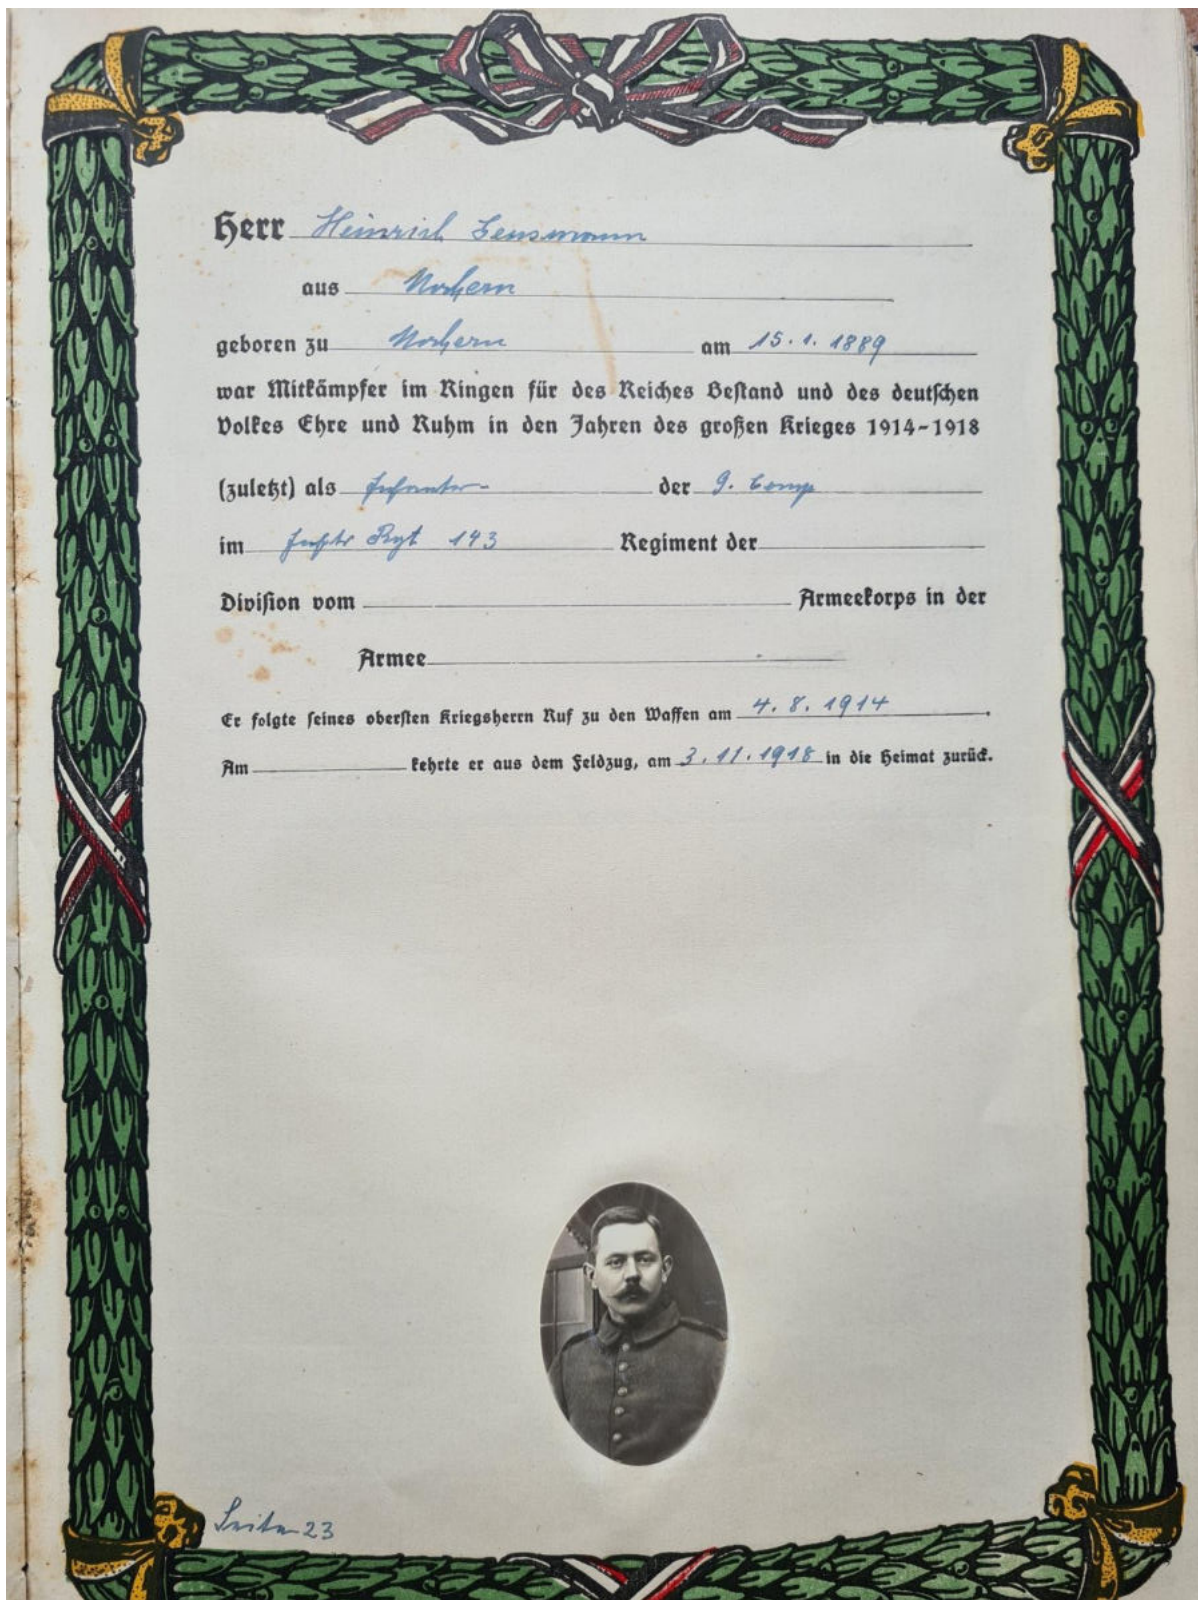 Herr Heinrich Sensmann
aus Nochern
geboren zu Nochern am 15.1.1889
war Mitkämpfer im Ringen für des Reiches Bestand und des deutschen
Volkes Ehre und Ruhm in den Jahren des großen Krieges 1914-1918
(zuletzt) als der 9. Comp
im Rgt 143 Regiment der
Division vom Armeekorps in der
Armee
Er folgte seines obersten Kriegsherrn Ruf zu den Waffen am 4.8.1914.
Am kehrte er aus dem Feldzug, am 3.11.1918 in die Heimat zurück.
Seite 23